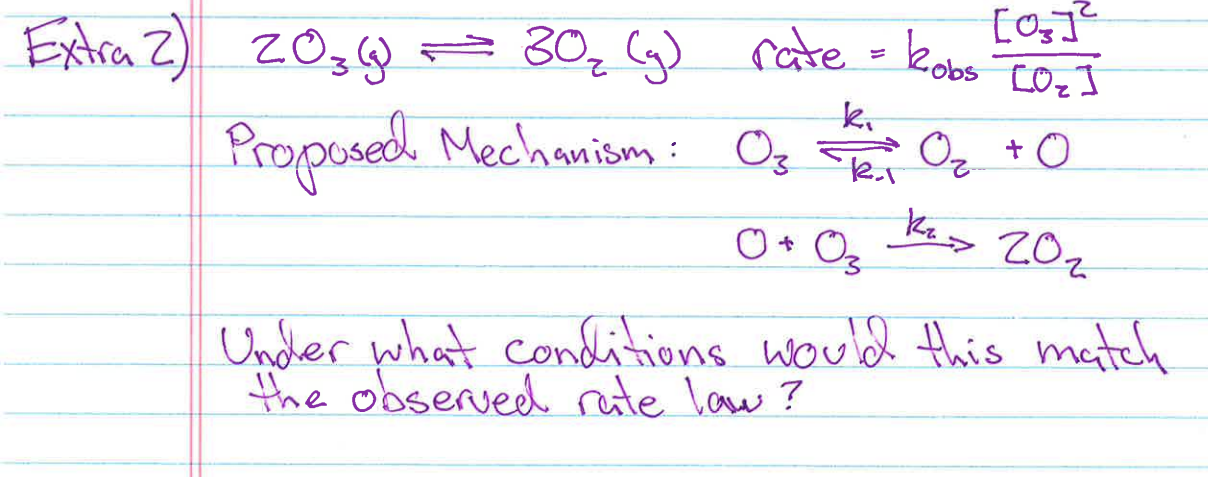 Extra 2) 2O₃(g) ⇌ 3O₂(g) rate = k_obs [O₃]²/[O₂]
Proposed Mechanism: O₃ ⇌ O₂ + O k₁ k₋₁
O + O₃ →k₂ 2O₂
Under what conditions would this match
the observed rate law?